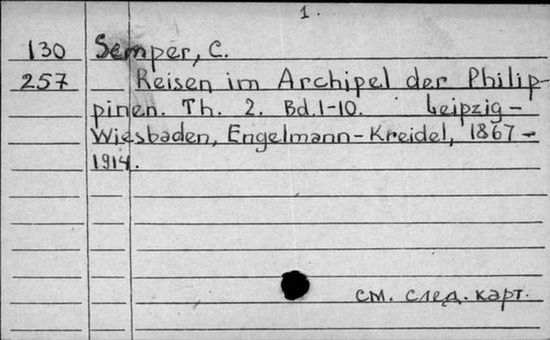 1.
130 Semper, C.
257 Reisen im Archipel der Philip-
pinen. Th. 2. Bd. 1-10. Leipzig -
Wiesbaden, Engelmann-Kreidel, 1867 -
1914.
см. след. карт.